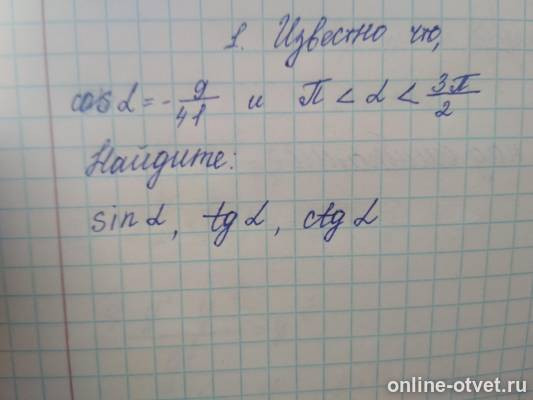 1. Известно что,
cos α = - 9/41 и π < α < 3π/2
Найдите:
sin α, tg α, ctg α
online-otvet.ru